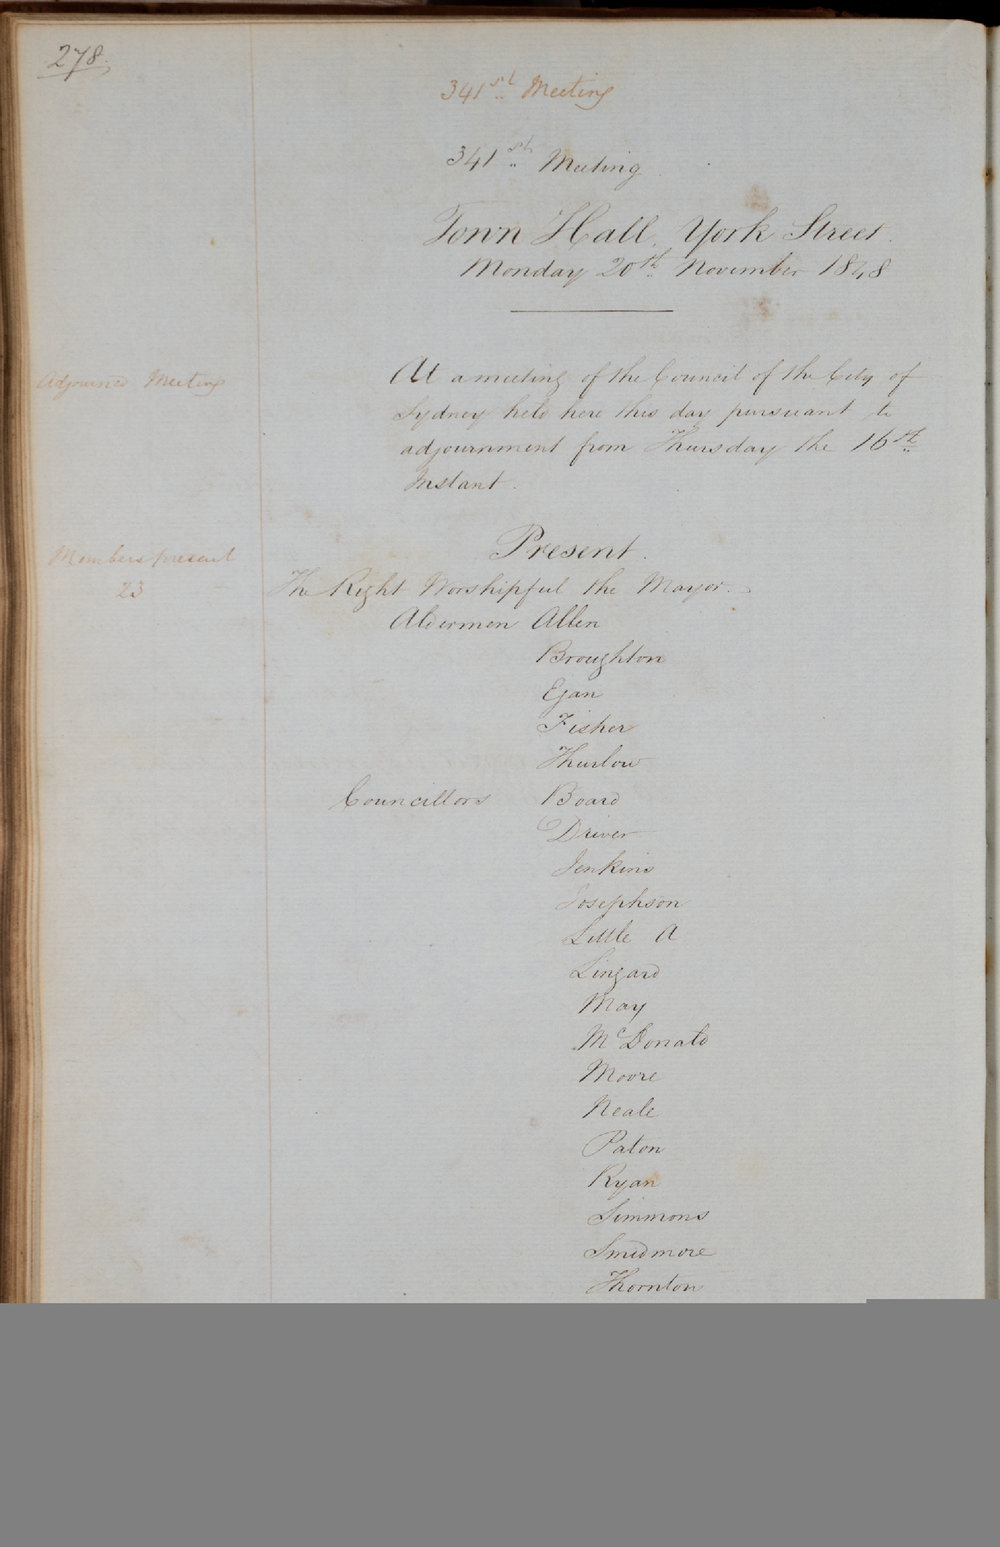 278.
341st Meeting
341st Meeting
Town Hall, York Street.
Monday 20th November 1848
Adjourned Meeting
At a meeting of the Council of the City of
Sydney held here this day pursuant to
adjournment from Thursday the 16th
Instant.
Present.
Members present
23
The Right Worshipful the Mayor.
Aldermen Allen
Broughton
Egan
Fisher
Thurlow
Councillors Board
Driver
Jenkins
Josephson
Little A
Lingard
May
McDonald
Moore
Neale
Paton
Ryan
Simmons
Smidmore
Thornton